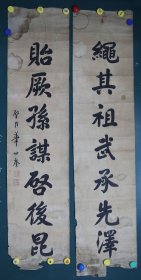 繩其祖武承先澤
貽厥孫謀啓後昆